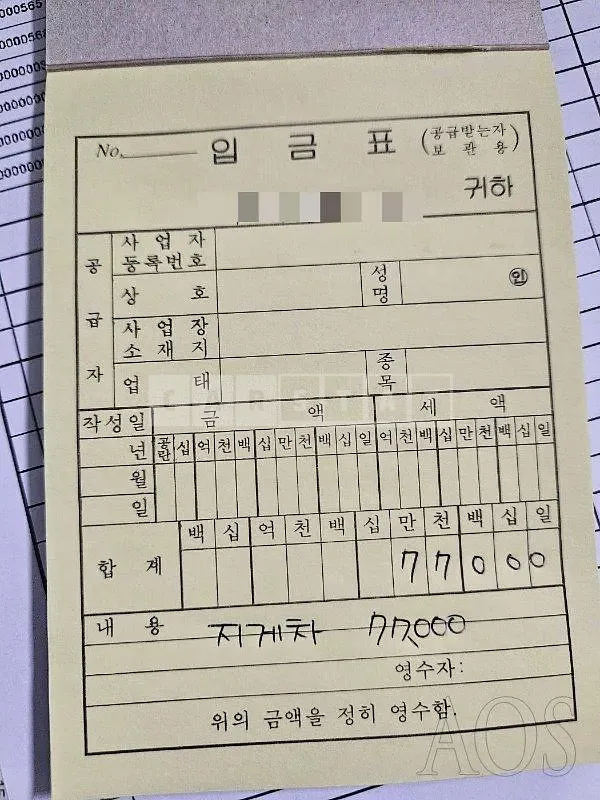 No.
입 금 표 (공급받는자 보 관 용)
귀하
공 급 자
사 업 자 등록번호
상 호
성 명
㊞
사 업 장 소 재 지
업 태
종 목
작성일 금 액 세 액
년 월 일
공란 십 억 천 백 십 만 천 백 십 일 억 천 백 십 만 천 백 십 일
백 십 억 천 백 십 만 천 백 십 일
합 계 7 7 0 0 0
내 용 지게차 77,000
영수자:
위의 금액을 정히 영수함.
AOS